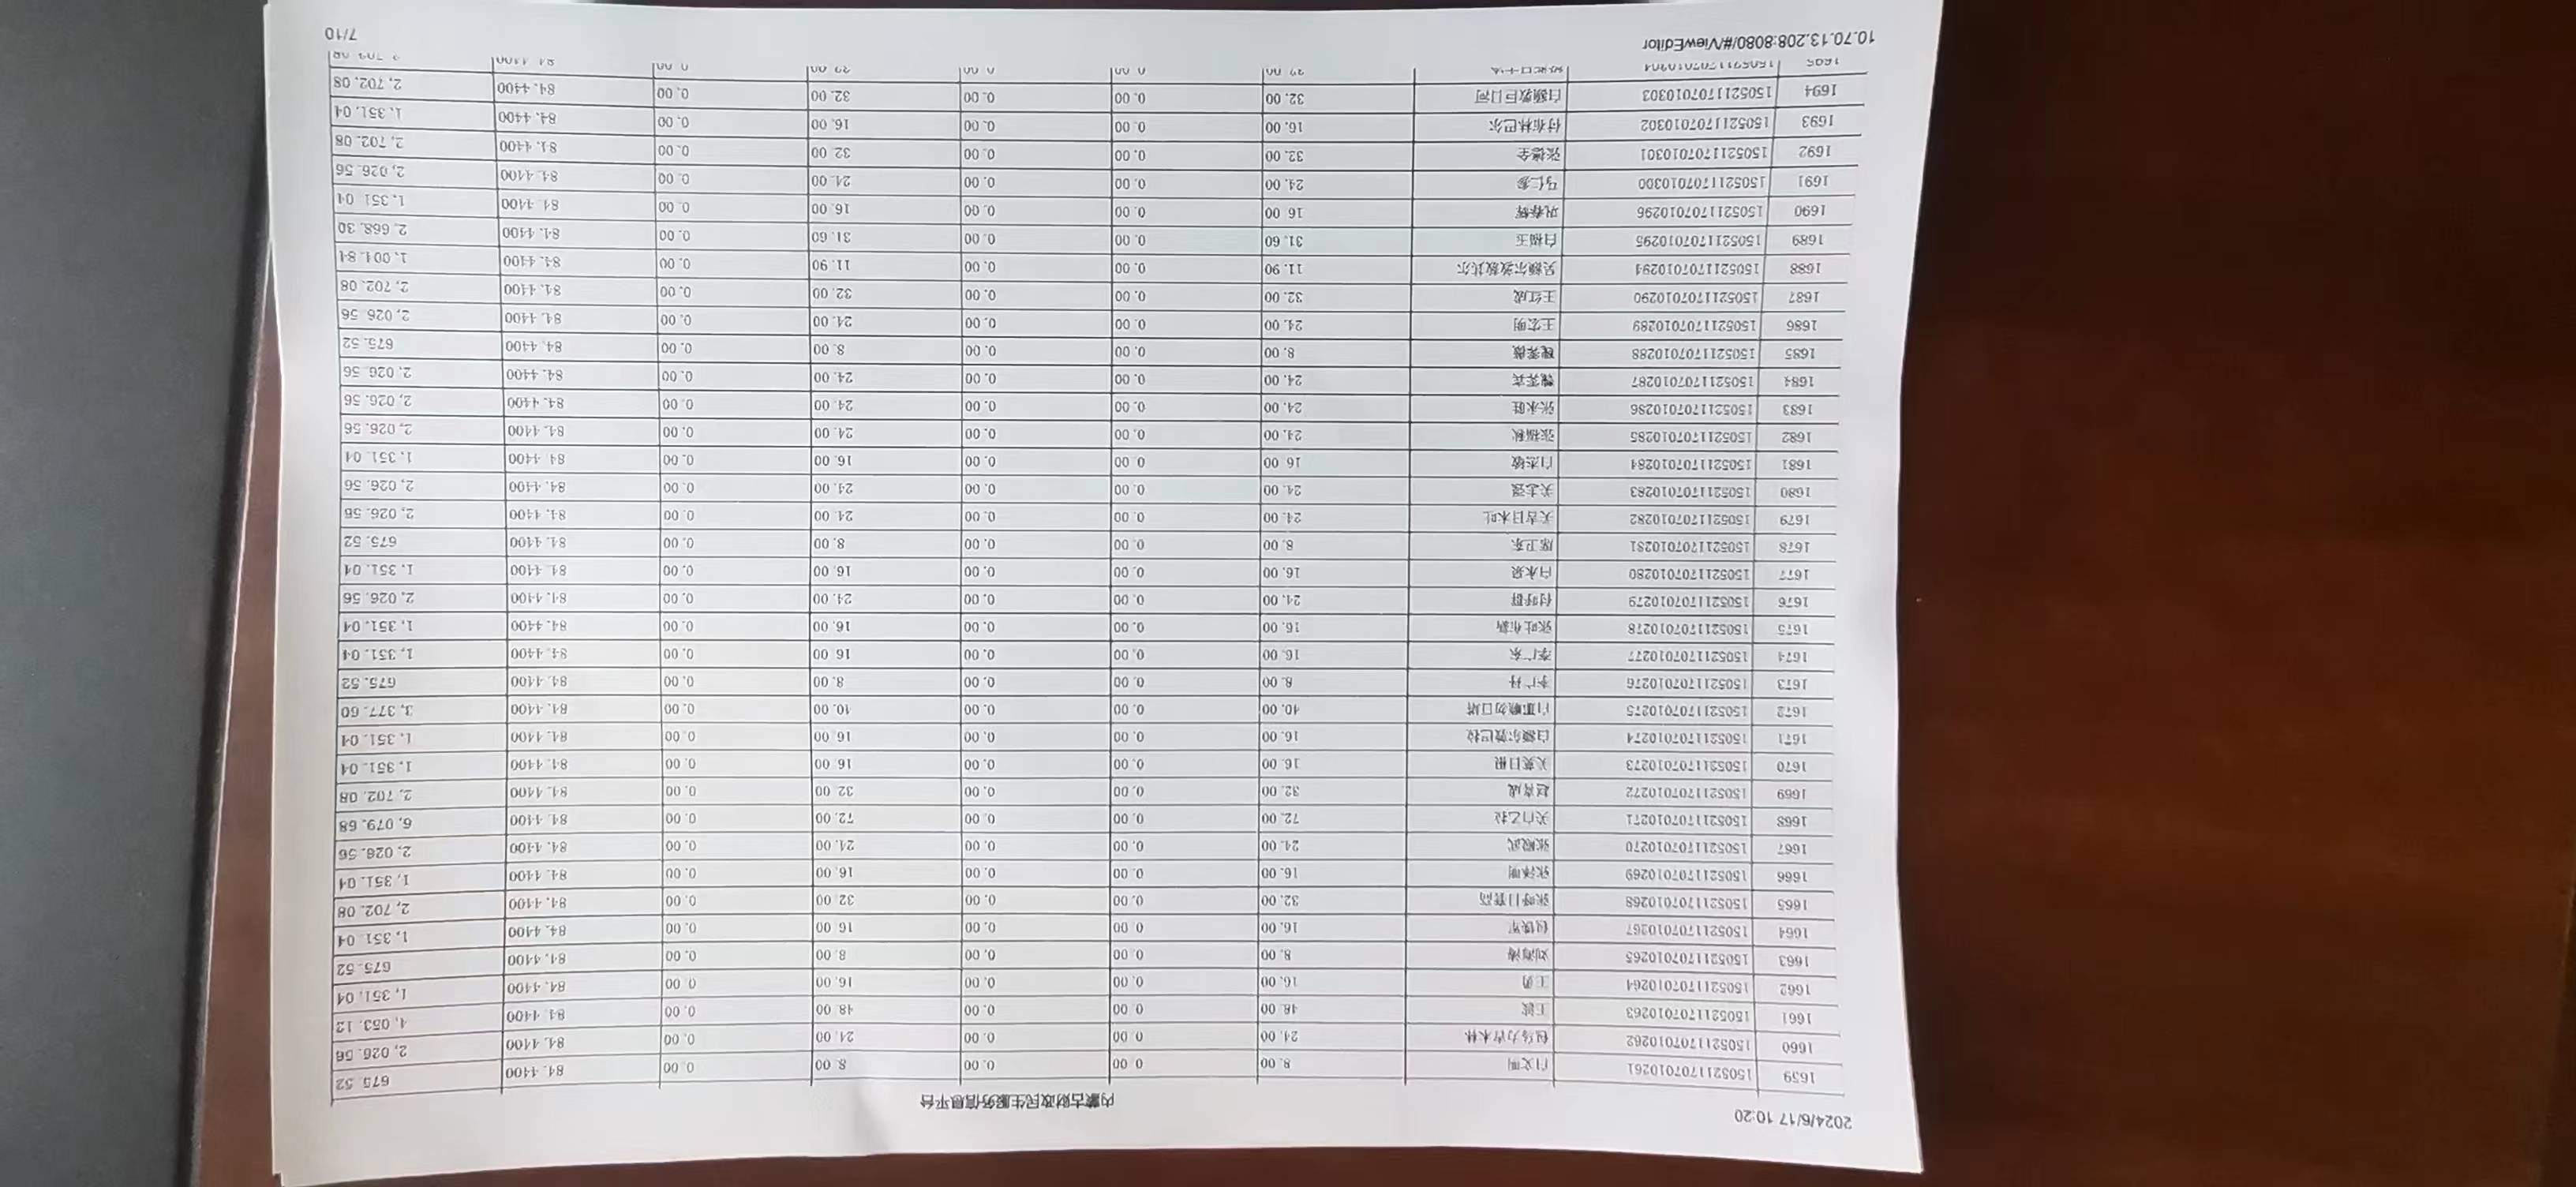 2024/6/17 10:20
内蒙古财政民生服务信息平台
1659 15052111707010261 白文明 8.00 0.00 0.00 8.00 0.00 84.4400 675.52
1660 15052111707010262 24.00 0.00 0.00 24.00 0.00 84.4400 2,026.56
1661 15052111707010263 48.00 0.00 0.00 48.00 0.00 84.4400 4,053.12
1662 15052111707010264 王勇 16.00 0.00 0.00 16.00 0.00 84.4400 1,351.04
1663 15052111707010265 刘海涛 8.00 0.00 0.00 8.00 0.00 84.4400 675.52
1664 15052111707010267 包铁军 16.00 0.00 0.00 16.00 0.00 84.4400 1,351.04
1665 15052111707010268 32.00 0.00 0.00 32.00 0.00 84.4400 2,702.08
1666 15052111707010269 16.00 0.00 0.00 16.00 0.00 84.4400 1,351.04
1667 15052111707010270 张殿武 24.00 0.00 0.00 24.00 0.00 84.4400 2,026.56
1668 15052111707010271 关白乙拉 72.00 0.00 0.00 72.00 0.00 84.4400 6,079.68
1669 15052111707010272 32.00 0.00 0.00 32.00 0.00 84.4400 2,702.08
1670 15052111707010273 16.00 0.00 0.00 16.00 0.00 84.4400 1,351.04
1671 15052111707010274 白额尔敦巴拉 16.00 0.00 0.00 16.00 0.00 84.4400 1,351.04
1672 15052111707010275 40.00 0.00 0.00 40.00 0.00 84.4400 3,377.60
1673 15052111707010276 李广丹 8.00 0.00 0.00 8.00 0.00 84.4400 675.52
1674 15052111707010277 李广东 16.00 0.00 0.00 16.00 0.00 84.4400 1,351.04
1675 15052111707010278 16.00 0.00 0.00 16.00 0.00 84.4400 1,351.04
1676 15052111707010279 付呼群 24.00 0.00 0.00 24.00 0.00 84.4400 2,026.56
1677 15052111707010280 白永泉 16.00 0.00 0.00 16.00 0.00 84.4400 1,351.04
1678 15052111707010281 席卫东 8.00 0.00 0.00 8.00 0.00 84.4400 675.52
1679 15052111707010282 关吉日木吐 24.00 0.00 0.00 24.00 0.00 84.4400 2,026.56
1680 15052111707010283 关志强 24.00 0.00 0.00 24.00 0.00 84.4400 2,026.56
1681 15052111707010284 白杰敏 16.00 0.00 0.00 16.00 0.00 84.4400 1,351.04
1682 15052111707010285 张福秋 24.00 0.00 0.00 24.00 0.00 84.4400 2,026.56
1683 15052111707010286 张永旺 24.00 0.00 0.00 24.00 0.00 84.4400 2,026.56
1684 15052111707010287 24.00 0.00 0.00 24.00 0.00 84.4400 2,026.56
1685 15052111707010288 8.00 0.00 0.00 8.00 0.00 84.4400 675.52
1686 15052111707010289 王宏明 24.00 0.00 0.00 24.00 0.00 84.4400 2,026.56
1687 15052111707010290 王红成 32.00 0.00 0.00 32.00 0.00 84.4400 2,702.08
1688 15052111707010294 11.90 0.00 0.00 11.90 0.00 84.4400 1,004.84
1689 15052111707010295 白福玉 31.60 0.00 0.00 31.60 0.00 84.4400 2,668.30
1690 15052111707010296 巩春辉 16.00 0.00 0.00 16.00 0.00 84.4400 1,351.04
1691 15052111707010300 马仁参 24.00 0.00 0.00 24.00 0.00 84.4400 2,026.56
1692 15052111707010301 张德全 32.00 0.00 0.00 32.00 0.00 84.4400 2,702.08
1693 15052111707010302 付布林巴尔 16.00 0.00 0.00 16.00 0.00 84.4400 1,351.04
1694 15052111707010303 白额敦巨日河 32.00 0.00 0.00 32.00 0.00 84.4400 2,702.08
1695 15052111707010304 32.00 0.00 0.00 32.00 0.00 84.4400 2,702.08
10.70.13.208:8080/#/ViewEditor
7/10